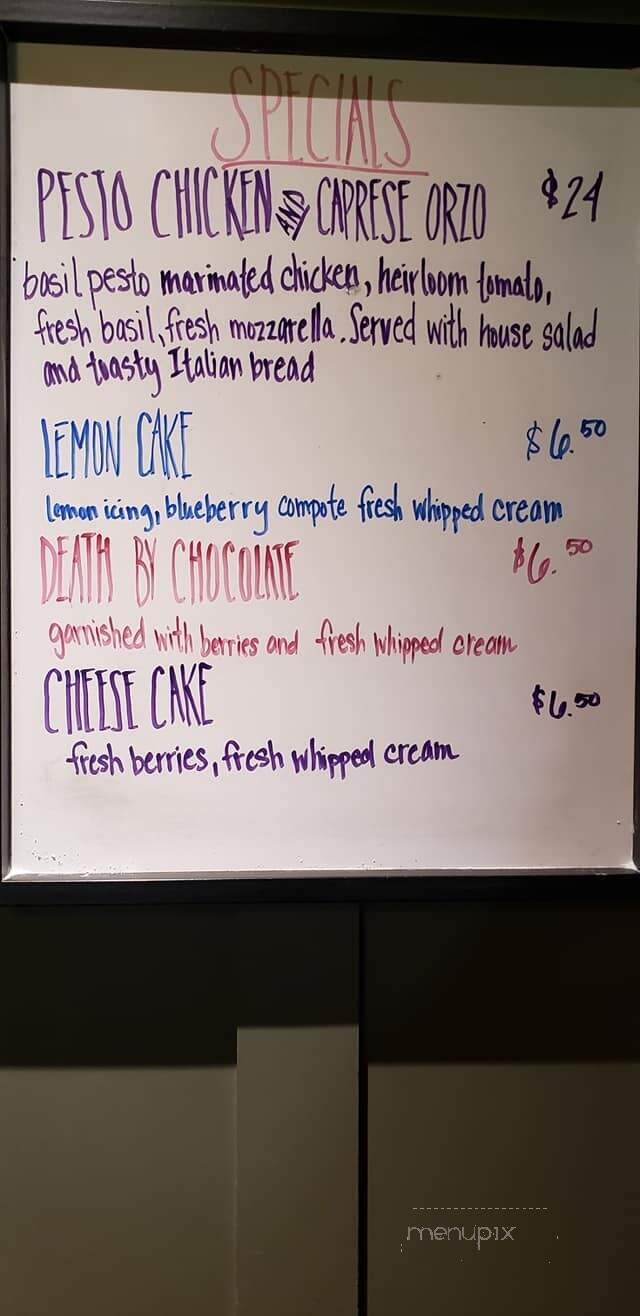 SPECIALS
PESTO CHICKEN AND CAPRESE ORZO $24
basil pesto marinated chicken, heirloom tomato,
fresh basil, fresh mozzarella. Served with house salad
and toasty Italian bread
LEMON CAKE $6.50
lemon icing, blueberry compote fresh whipped cream
DEATH BY CHOCOLATE $6.50
garnished with berries and fresh whipped cream
CHEESE CAKE $6.50
fresh berries, fresh whipped cream
menupix